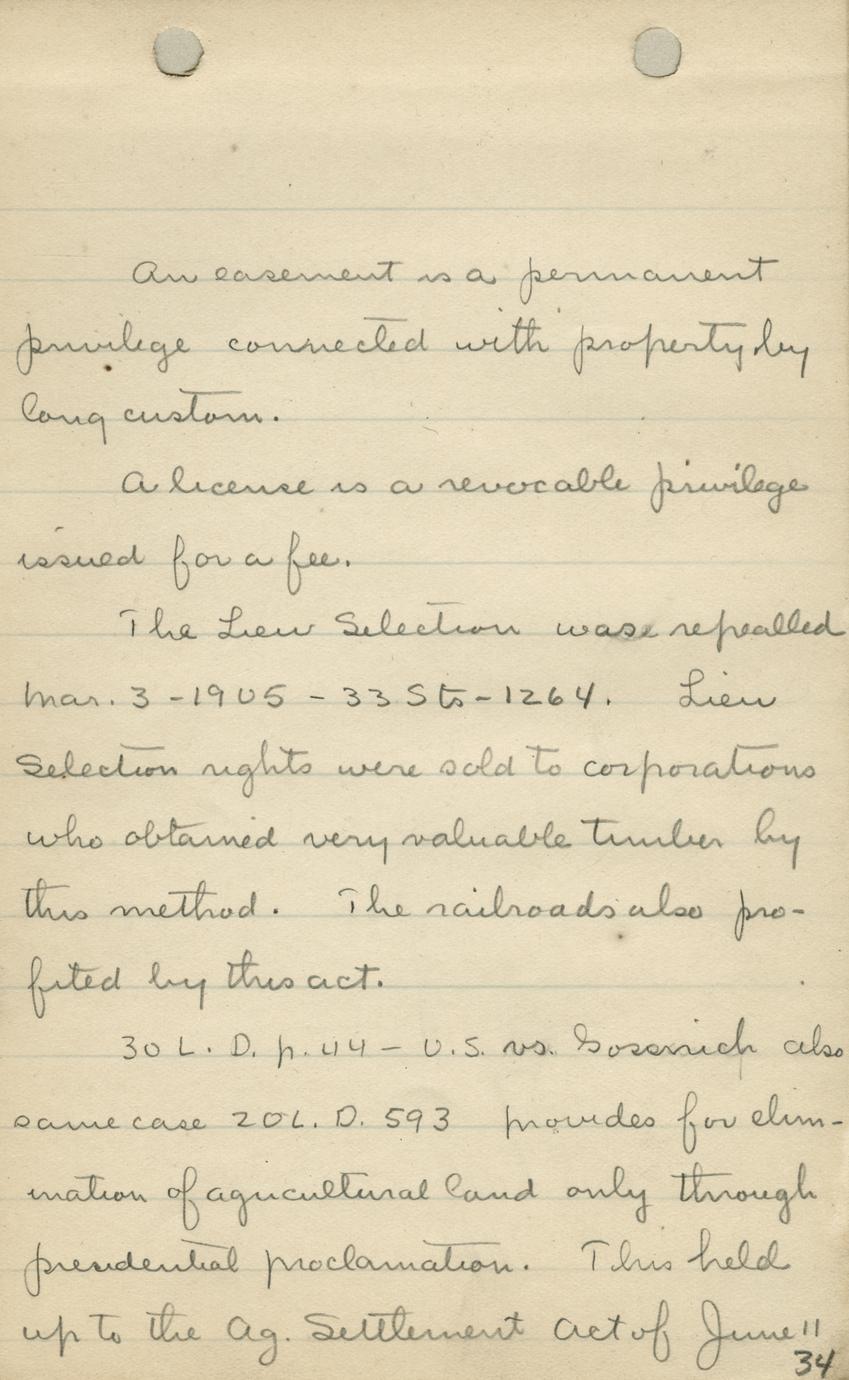 An easement is a permanent
privilege connected with property by
long custom.
A license is a revocable privilege
issued for a fee.
The Lieu Selection was repealled
Mar. 3 - 1905 - 33 Sts - 1264. Lieu
Selection rights were sold to corporations
who obtained very valuable timber by
this method. The railroads also pro-
fited by this act.
30 L. D. p. 44 - U.S. vs. also
same case 20 L. D. 593 provides for elim-
ination of agricultural land only through
presidential proclamation. This held
up to the Ag. Settlement Act of June 11
34